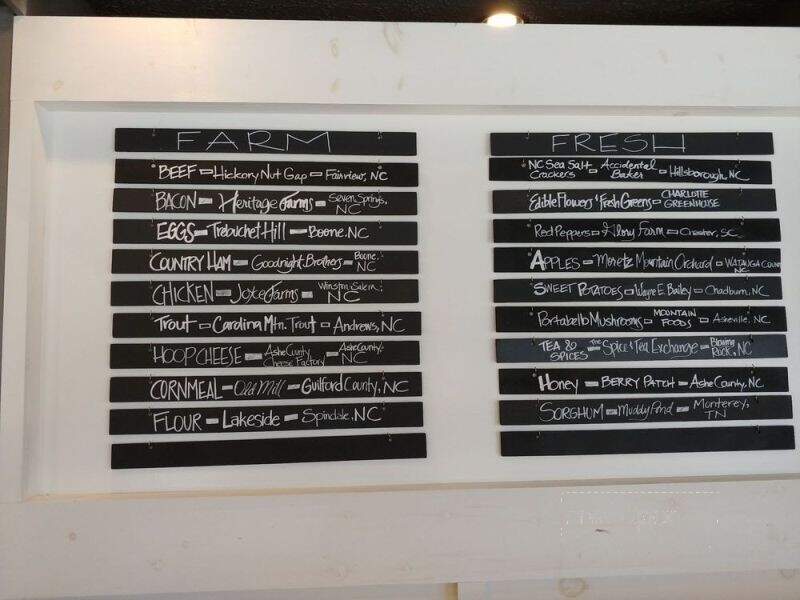 FARM
BEEF - Hickory Nut Gap - Fairview, NC
BACON - Heritage Farms - Seven Springs, NC
EGGS - Trebuchet Hill - Boone, NC
COUNTRY HAM - Goodnight Brothers - Boone, NC
CHICKEN - Joyce Farms - Winston Salem, NC
Trout - Carolina Mtn. Trout - Andrews, NC
HOOP CHEESE - Ashe County Cheese Factory - Ashe County, NC
CORNMEAL - Old Mill - Guilford County, NC
FLOUR - Lakeside - Spindale, NC
FRESH
NC Sea Salt Crackers - Accidental Baker - Hillsborough, NC
Edible Flowers & Fresh Greens - CHARLOTTE GREENHOUSE
Red Peppers - Glory Farm - Chester, SC
APPLES - Moretz Mountain Orchard - WATAUGA COUNTY NC
SWEET POTATOES - Wayne E. Bailey - Chadburn, NC
Portabello Mushrooms - MOUNTAIN FOODS - Asheville, NC
TEA & SPICES - The Spice & Tea Exchange - Blowing Rock, NC
Honey - BERRY PATCH - Ashe County, NC
SORGHUM - Muddy Pond - Monterey, TN